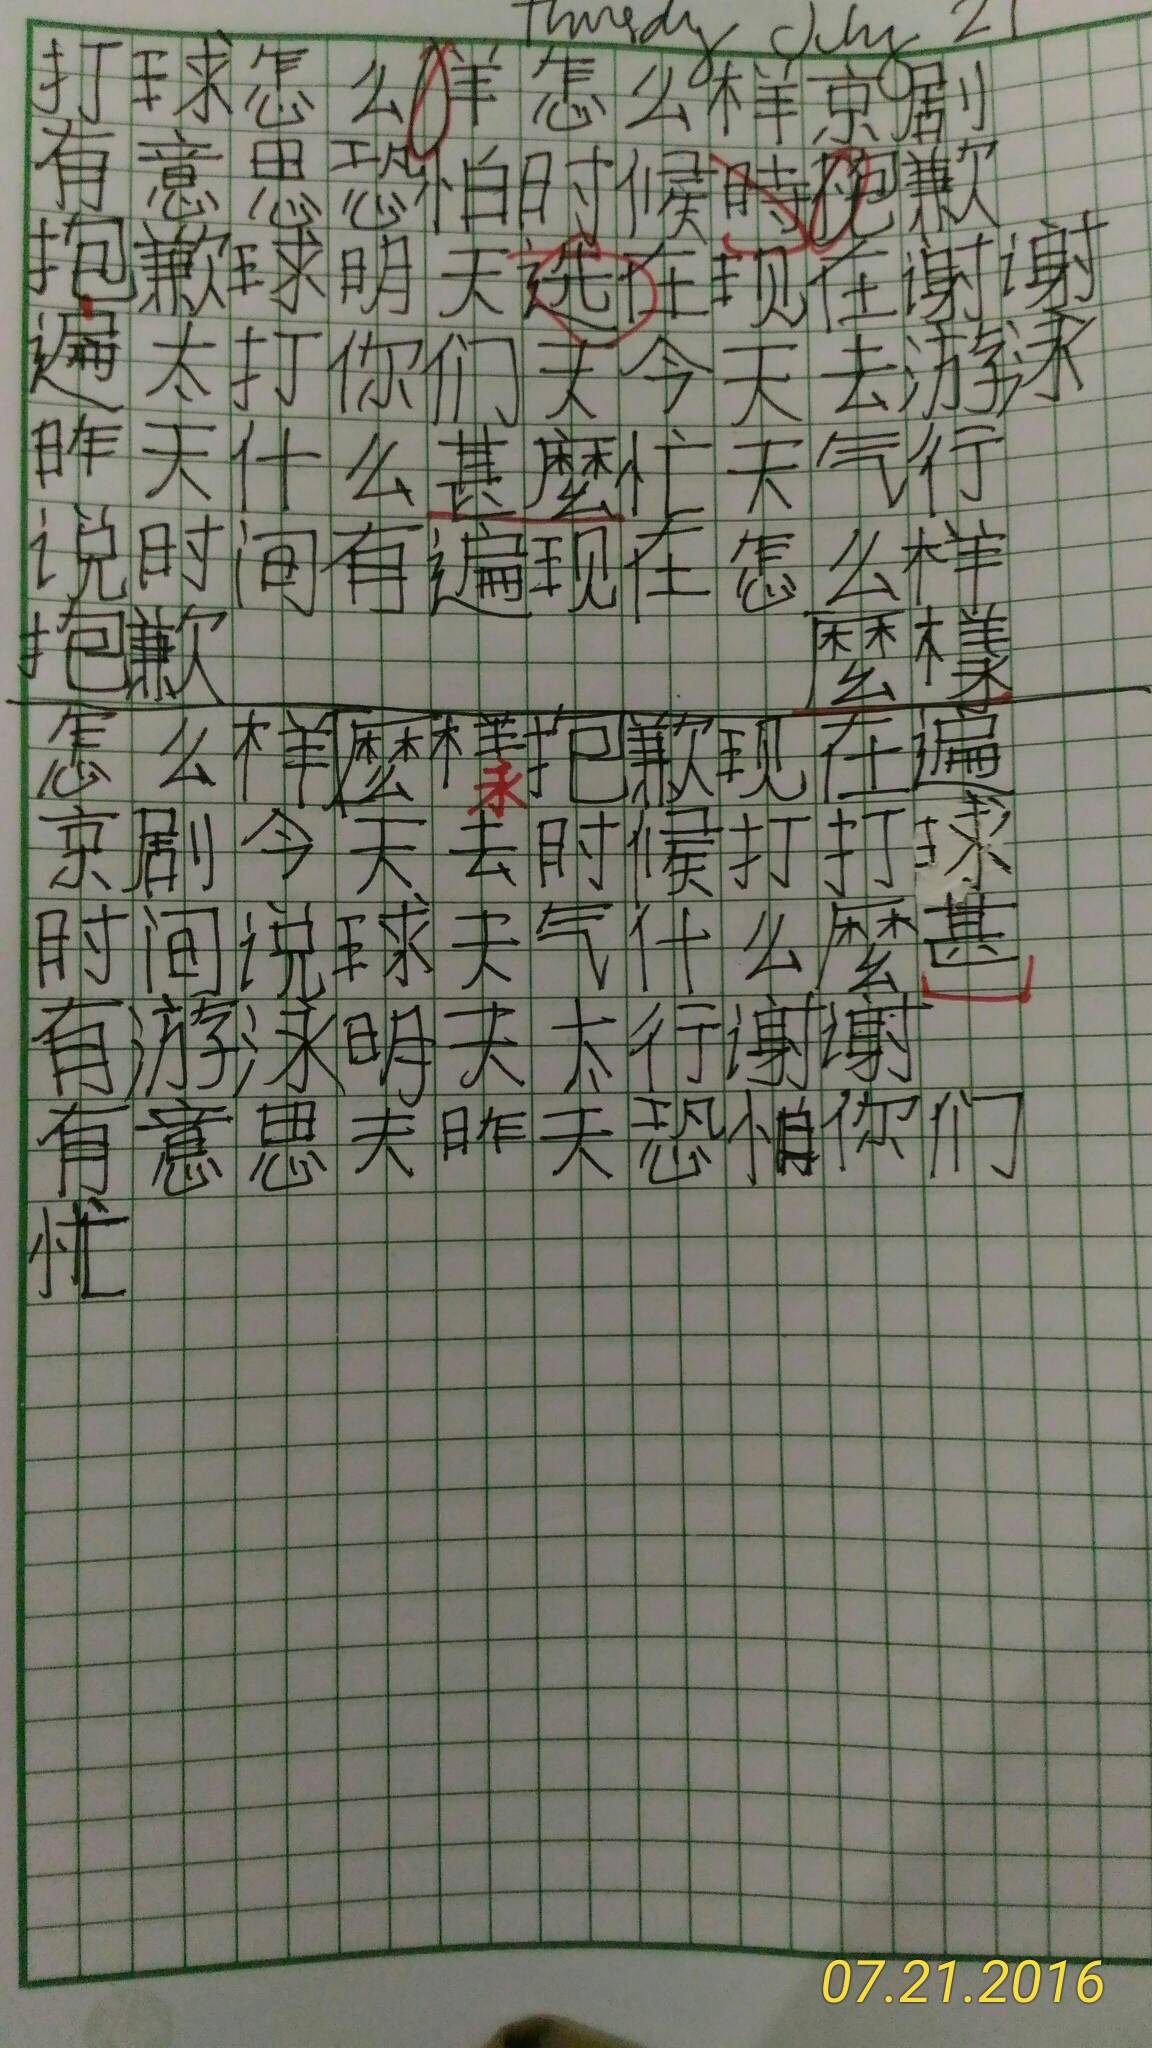 Thursdy July 21
打球怎么羊怎么样京剧
有意思恐怕时候時抱歉
抱歉球明天选在现在谢谢
遍太打你们天今天去游泳
昨天什么甚麼忙天气行
说时间有遍现在怎么样
抱歉 麼樣
怎么样麼样抱歉现在遍
永
京剧今天去时候打打球
时间说球天气什么麼甚
有游泳明天太行谢谢
有意思天昨天恐怕你们
忙
07.21.2016